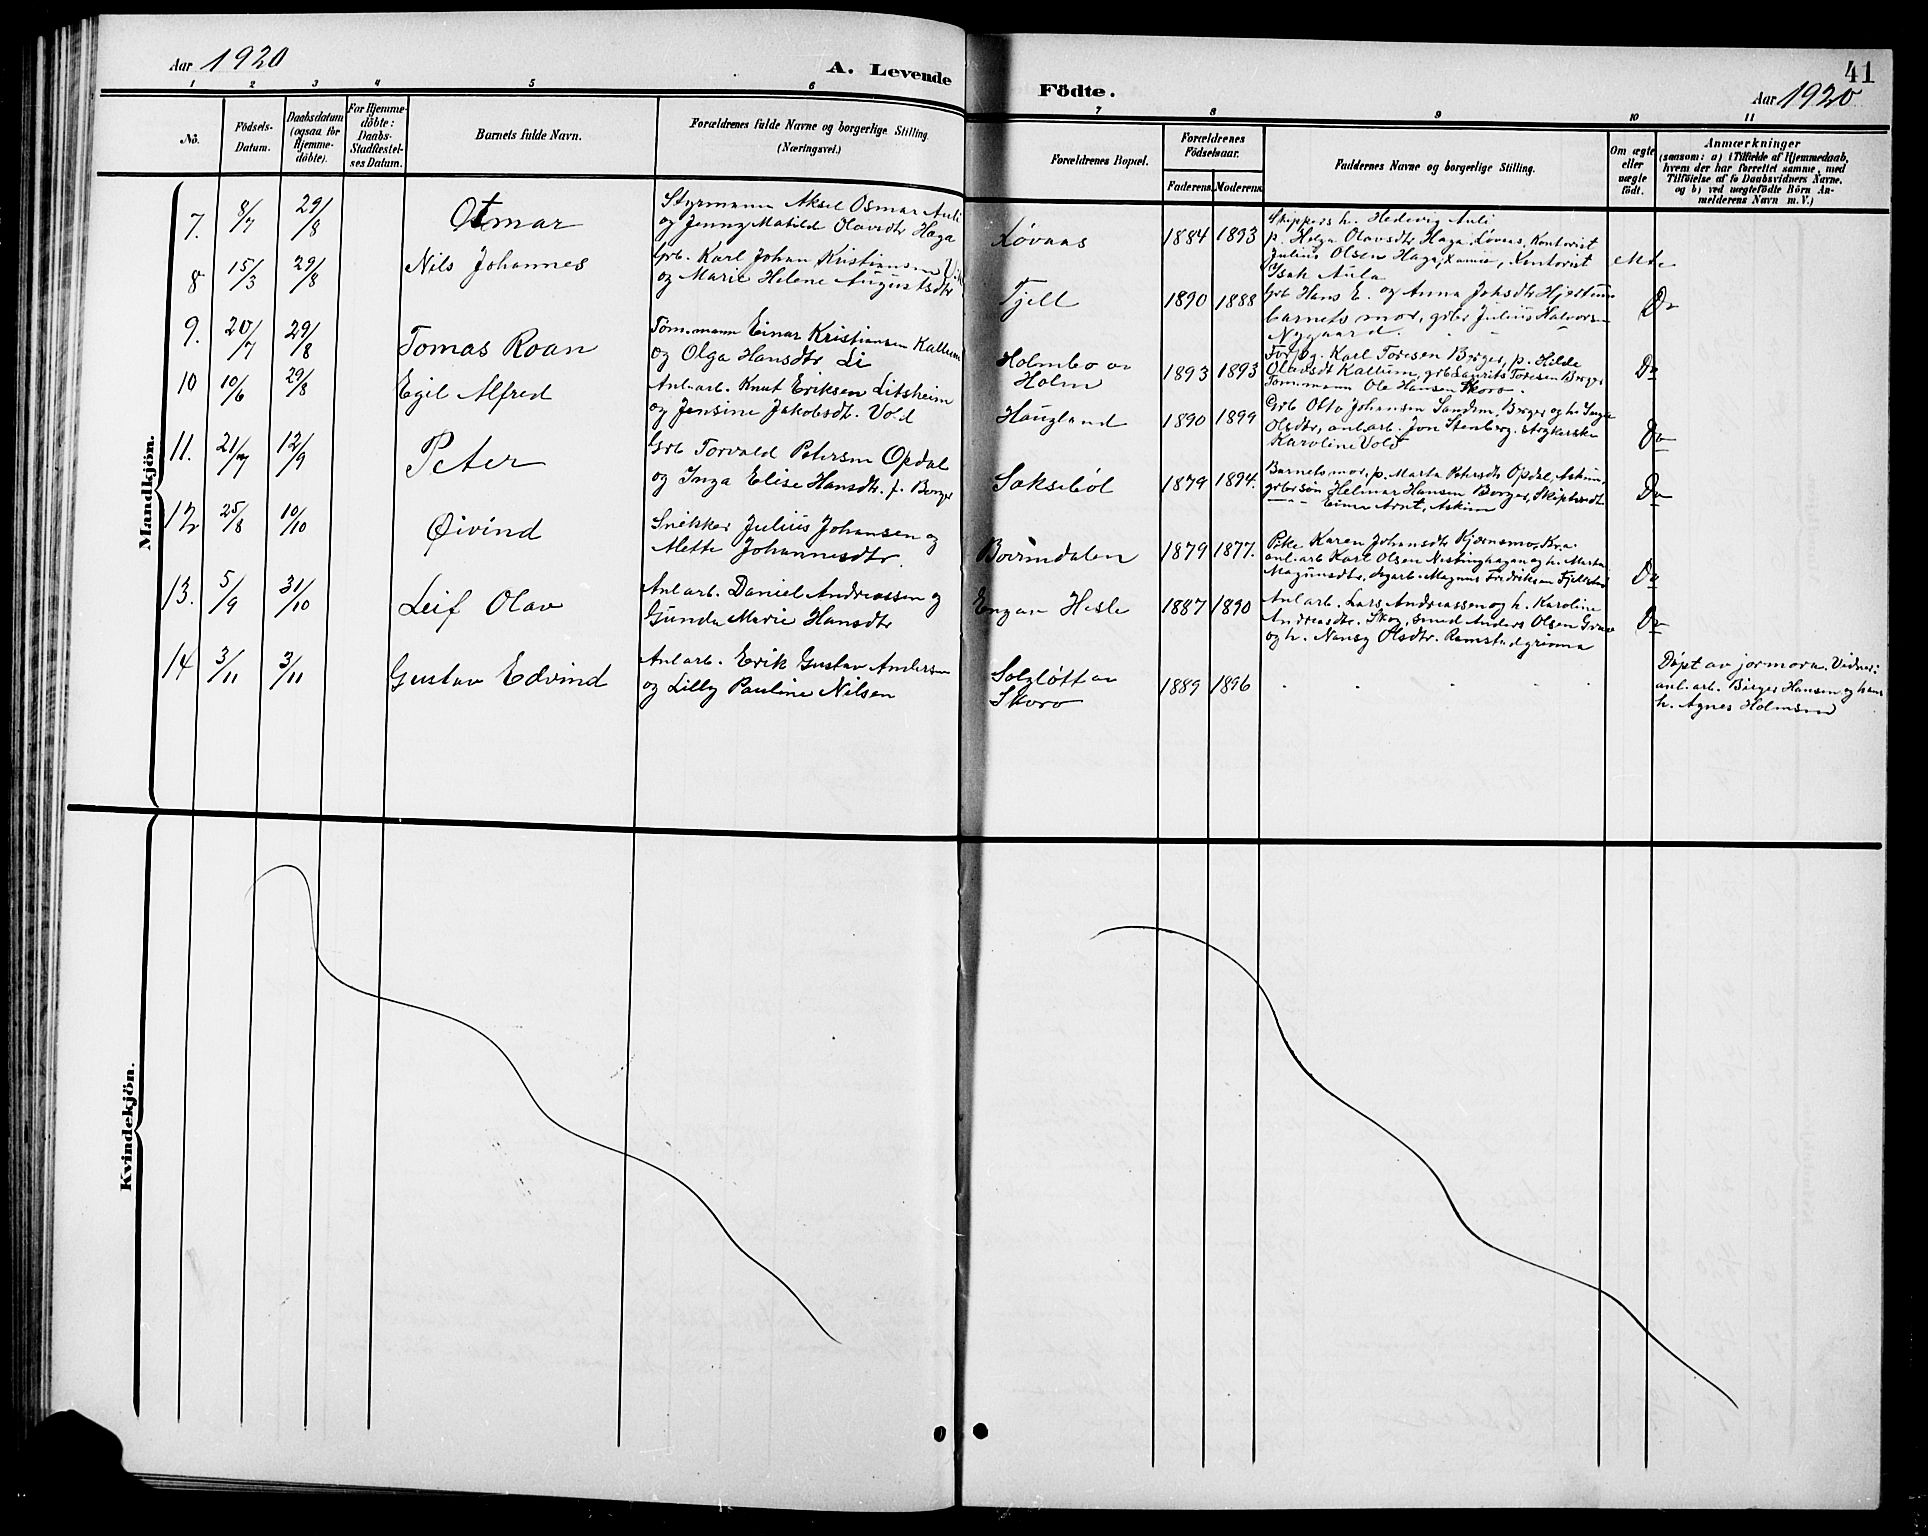 Aar 1920
A. Levende Födte.
41
Aar 1920
1 2 3 4 5 6 7 8 9 10 11
No.
Födsels-Datum.
Daabsdatum (ogsaa for Hjemmedöbte).
For Hjemmedöbte: Daabs-Stadfæstelses Datum.
Barnets fulde Navn.
Forældrenes fulde Navne og borgerlige Stilling.
(Næringsvei.)
Forældrenes Bopæl.
Forældrenes Födselsaar.
Faderens. Moderens.
Faddernes Navne og borgerlige Stilling.
Om ægte eller uægte födt.
Anmærkninger
(saasom: a) i Tilfælde af Hjemmedaab,
hvem der har forrettet samme, med
Tilföielse af to Daabsvidners Navne,
og b) ved uægtefödte Börn An-
melderens Navn m. V.)
Mandkjön.
7. 8/7 29/8 Otmar
Styrmann Aksel Osmar Auli
og Jenny Matilde Olavsdtr Haga
Løvaas 1884 1893
Skippers h. Hedevig Auli
p. Helga Olavsdtr Haga, Løvaas, Kontorist
Julius Olsen Haga, Kontorist
Isak Aula
8 15/3 29/8 Nils Johannes
Grb. Karl Johan Kristiansen
og Marie Helene Augustsdtr
Tjell 1890 1888
Grb Hans E. og Anna Johsdtr
barnets mor, grbr Julius Halvorsen
Nygaard.
Do
9. 20/7 29/8 Tomas Roan
Tømmann Einar Kristiansen Kallum
og Olga Hansdtr Li
Holmbo av
Holm
1893 1893
Karl Toresen Berger, p. Hilde
Olavsdt Kallum, grb Laurits Toresen Berger
Tømmann Ole Hansen Skoro
Do
10 10/6 29/8 Egil Alfred
Anl.arb. Knut Eriksen Litsheim
og Jensine Jakobsdt. Vold
Haugland 1890 1899
Grb Otto Johansen Sandem, Berger og h. Inga
Olsdtr, anl.arb. Jon Stenberg, strykerske
Karoline Vold
Do
11. 21/7 12/9 Peter
Grb Torvald Petersen Opdal
og Inga Elise Hansdtr. f. Berger
Saksebøl 1879 1894.
Barnets mor, p. Marta Petersdtr Opdal, Askim,
grbr søn Helmar Hansen Berger, Skiptvedt
Einar Arnt, Askim
Do
12 25/8 10/10 Øivind
Snikker Julius Johansen og
Mette Johannesdtr.
Bovimdalen 1879 1877.
Pike Karen Johansdtr Kjernsmo, Kra.
anl.arb Karl Olsen og h. Marta
Magnusdtr, Magnus Fredriksen
Do
13. 5/9 31/10 Leif Olav
Anl.arb. Daniel Andreassen og
Gunda Marie Hansdtr
Engar Hesle 1887 1890
Anl.arb. Lars Andreassen og h. Karoline
Andreasdtr. Skog, smed Anders Olsen
og h. Nansy Olsdtr. Ramstadgrinna
Do
14 3/11 3/11 Gustav Edvind
Anl.arb. Erik Gustav Andersen
og Lilly Pauline Nilsen
Solgløtt av
Skoro
1889 1896
Døpt av jormora. Vidner:
anl.arb. Birger Hansen og hans
h. Agnes Holmsen
Kvindekjön.